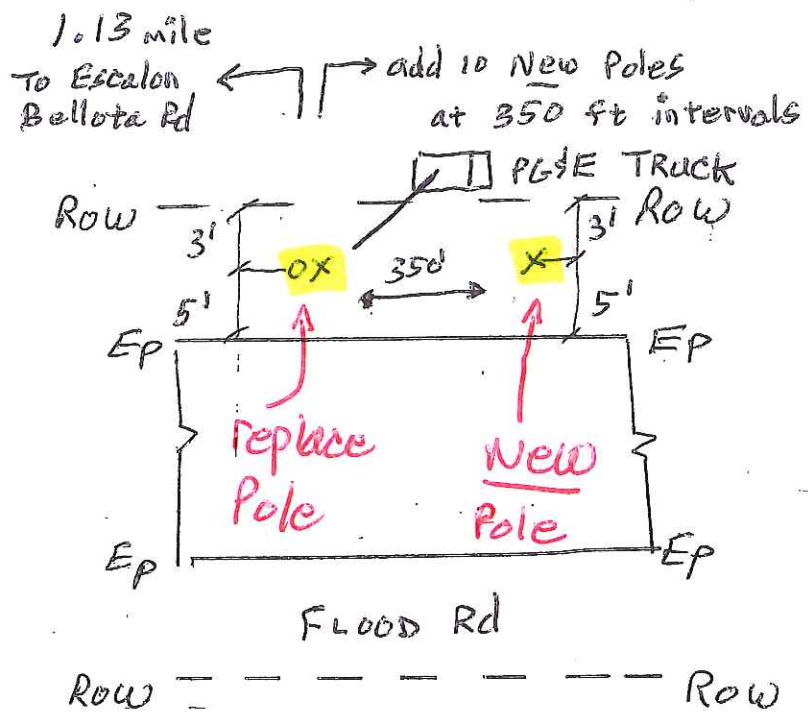 1.13 mile
To Escalon
Bellota Rd
add 10 New Poles
at 350 ft intervals
PG&E TRUCK
ROW
ROW
3'
3'
OX
350'
X
5'
5'
EP
EP
replace
Pole
New
Pole
EP
EP
FLOOD Rd
ROW
ROW